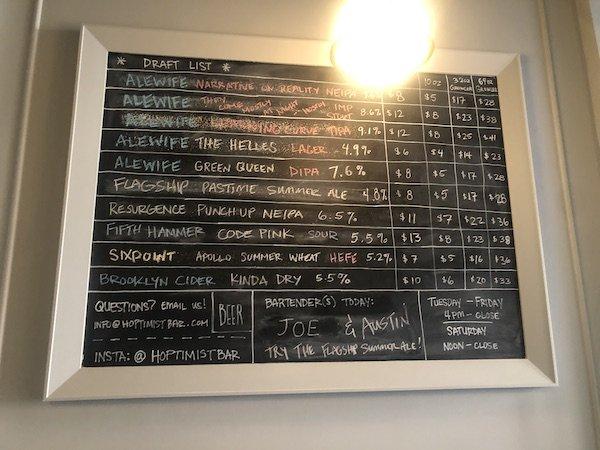 * DRAFT LIST *
10oz 32oz GROWLER 64oz GROWLER
ALEWIFE NARRATIVE ON REALITY NEIPA $8 $5 $17 $28
ALEWIFE THEY IMP STOUT 8.6% $12 $8 $23 $38
ALEWIFE CURVE TIPA 9.1% $12 $8 $25 $41
ALEWIFE THE HELLES LAGER 4.9% $6 $4 $14 $23
ALEWIFE GREEN QUEEN DIPA 7.6% $8 $5 $17 $28
FLAGSHIP PASTIME SUMMER ALE 4.0% $8 $5 $17 $28
RESURGENCE PUNCH UP NEIPA 6.5% $11 $7 $22 $36
FIFTH HAMMER CODE PINK SOUR 5.5% $13 $8 $23 $38
SIXPOINT APOLLO SUMMER WHEAT HEFE 5.2% $7 $5 $16 $26
BROOKLYN CIDER KINDA DRY 5.5% $10 $6 $20 $33
QUESTIONS? EMAIL US!
INFO@HOPTIMISTBAR.COM
INSTA: @HOPTIMISTBAR
BEER
BARTENDER(S) TODAY:
JOE & AUSTIN
TRY THE FLAGSHIP SUMMER ALE!
TUESDAY - FRIDAY
4PM - CLOSE
SATURDAY
NOON - CLOSE